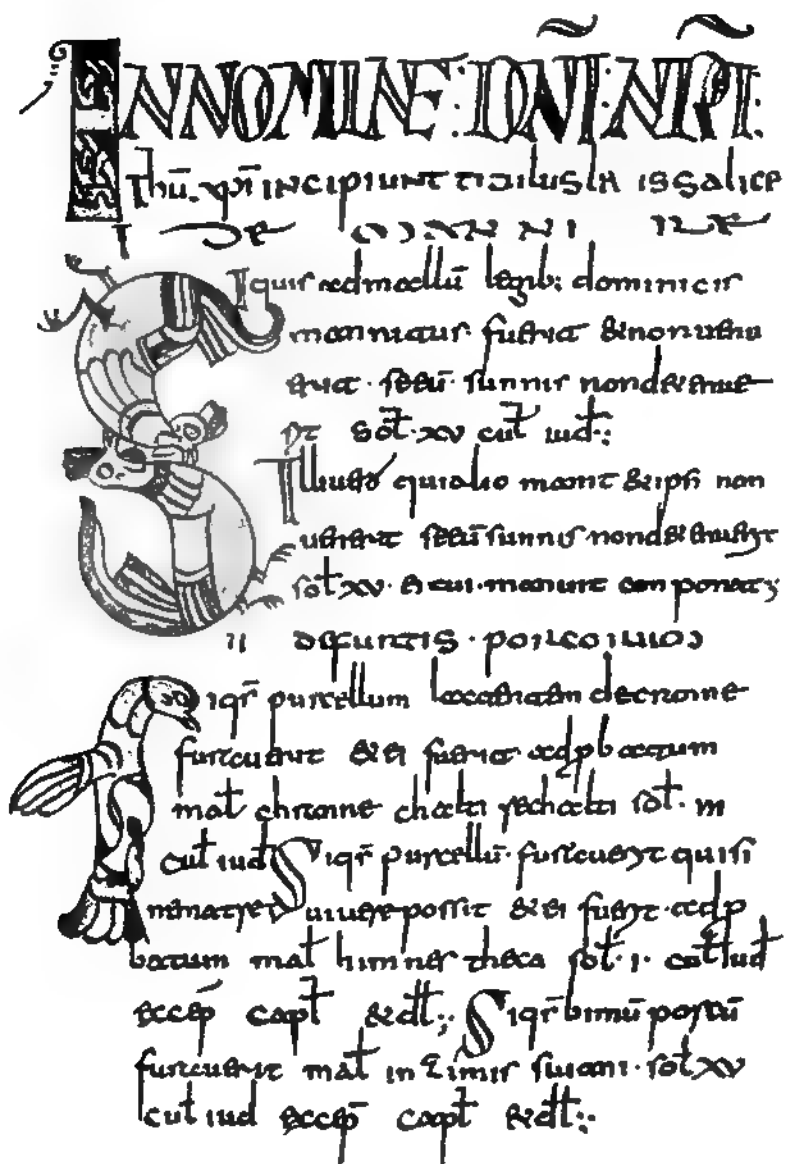 INNOMINE: DN̄I: NR̄I:
Ihū. xp̄i INCIPIUNT
I De
Siquis admallū legib; dominicis
mannitus· fuerit & non
sunnis non
sol̄· xv cul̄ iud·:
Ille uero qui alio manit & ipsi non
uenerit seeū sunnis non detenuerit
sol̄ xv· ei cui· manuit conponat;
II De furtis· porcorum
Siqr̄ purcellum lactentem decranne
furtuerit & ei fuerit· adp batum
mal̄ chranne chalti rechalti sol̄· III
cul̄ iud Siqr̄ purcellū· furtuerit qui si
ne matre uiuere possit & ei fuerit· adp
batum mal̄ himnes theca sol̄· I· cul̄ iud
eccep̄ capl̄ & dl̄:; Siqr̄ bimū porcū
furtuerit mal̄ in zimis suiani· sol̄ xv
cul̄ iud eccep̄ capl̄ & dl̄:·